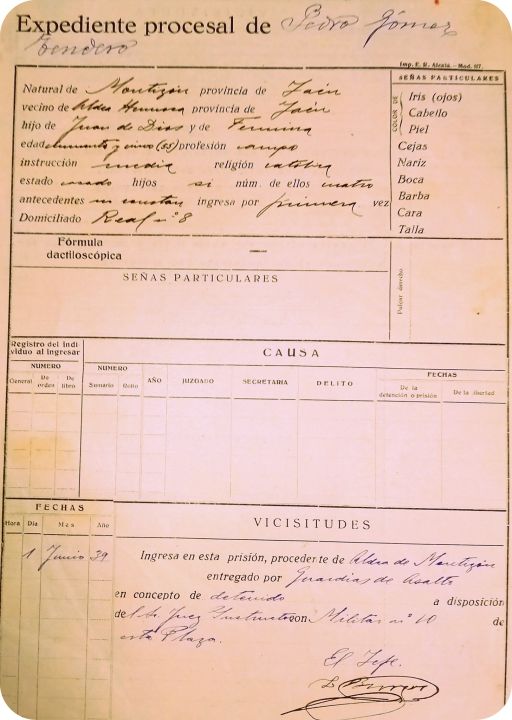 Expediente procesal de Pedro Gómez
Tendero
Imp. E. R. Alcalá.-Mod. 117.
Natural de Montizón provincia de Jaén
vecino de Aldea Hermosa provincia de Jaén
hijo de Juan de Dios y de Fermina
edad cincuenta y cinco (55) profesión campo
instrucción media religión católica
estado casado hijos si núm. de ellos cuatro
antecedentes no constan ingresa por primera vez
Domiciliado Real nº 8
SEÑAS PARTICULARES
COLOR DE
Iris (ojos)
Cabello
Piel
Cejas
Nariz
Boca
Barba
Cara
Talla
Fórmula
dactiloscópica —
SEÑAS PARTICULARES
Pulgar derecho
Registro del indi
viduo al ingresar
NUMERO
General De orden De libro
CAUSA
NUMERO
Sumario Rollo AÑO JUZGADO SECRETARIA DELITO
FECHAS
De la detención o prisión De la libertad
FECHAS
Hora Día Mes Año
1 Junio 39
VICISITUDES
Ingresa en esta prisión, procedente de Aldea de Montizón
entregado por Guardias de Asalto
en concepto de detenido a disposición
del Sr. Juez Instructor con Militar nº 10 de
esta Plaza.
El Jefe.